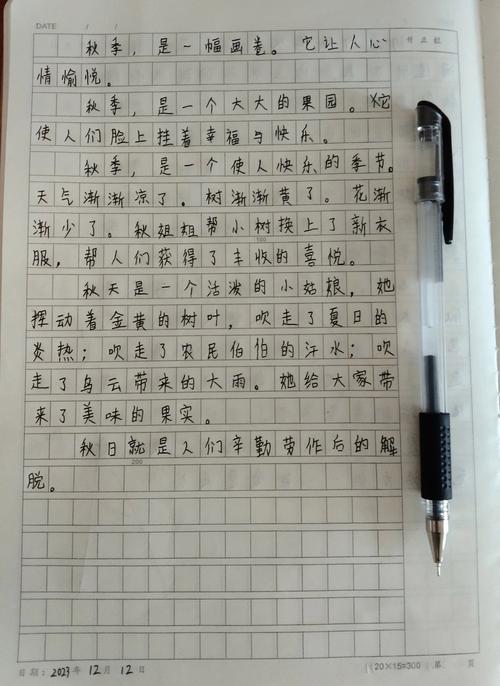 DATE / /
秋季，是一幅画卷。它让人心
情愉悦。
秋季，是一个大大的果园。它
使人们脸上挂着幸福与快乐。
秋季，是一个使人快乐的季节。
天气渐渐凉了。树渐渐黄了。花渐
渐少了。秋姐姐帮小树换上了新衣
100
服，帮人们获得了丰收的喜悦。
秋天是一个活泼的小姑娘，她
挥动着金黄的树叶，吹走了夏日的
炎热；吹走了农民伯伯的汗水；吹
走了乌云带来的大雨。她给大家带
来了美味的果实。
秋日就是人们辛勤劳作后的解
200
脱。
日期：2023年12月12日
20×15=300 第 页